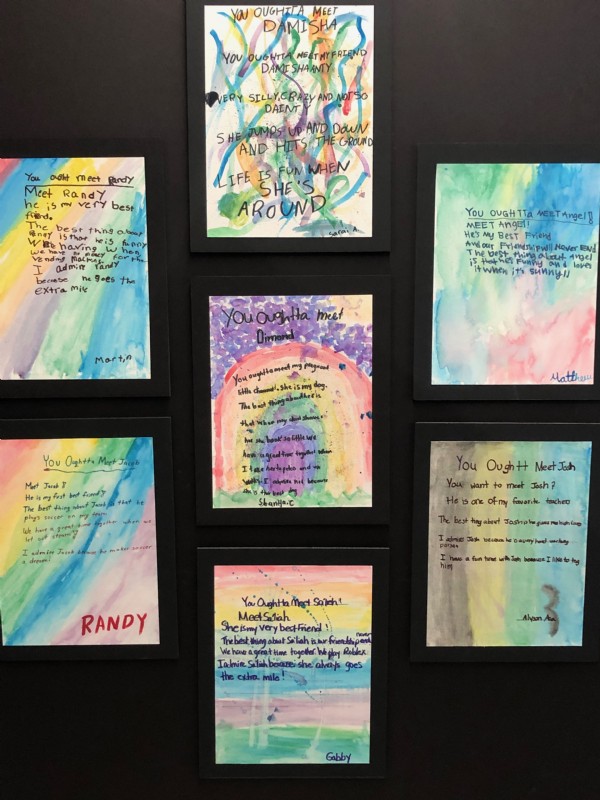 YOU OUGHTTA MEET
DAMISHA
YOU OUGHTTA MEET MY FRIEND
DAMISHAANTY
VERY SILLY, CRAZY AND NOT SO
DAINTY
SHE JUMPS UP AND DOWN
AND HITS THE GROUND
LIFE IS FUN WHEN
SHE'S
AROUND
Sarai A.
You ought meet Randy
Meet Randy
he is my very best
friend.
The best thing about
Randy is that he is funny
I admire randy
because he goes the
extra mile
Martin
YOU OUGHTTa MEET Angel!!
MEET ANGEL!
He's MY BesT Friend
And our Friendship will Never End
The best thing about Angel
is that he's Funny and loves
it when it's sunny!!
Matthew
You Oughtta meet
Dimond
You oughtta meet my
little diamond. She is my dog.
The best thing about her is
that
have a good time together when
I take her to
She is the best dog
You Oughtta Meet Jacob
Meet Jacob!
He is my first best friend!
The best thing about Jacob is that he
plays soccer on my team
We have a great time together when we
let out steam!
I admire Jacob because he makes soccer
a dream!
RANDY
You Oughtt Meet Josh
You want to meet Josh?
He is one of my favorite teachers
The best thing about Josh is he gives me
I admire Josh because he is a very hard working
person
I have a fun time with Josh because I like to
him
Alyson
You Oughtta Meet Sa'liah!
Meet Sa'liah
She is my very best friend!
The best thing about Sa'liah is our friendship never ends
We have a great time together. We play Roblox.
I admire Sa'liah because she always goes
the extra mile!
Gabby